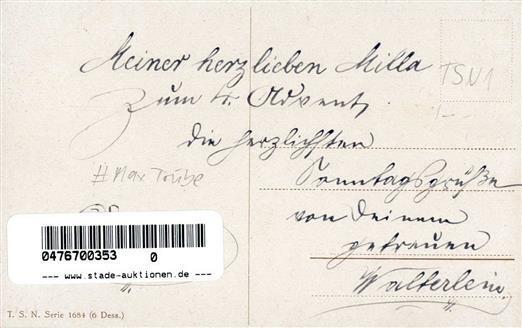 Meiner herzlieben Milla
TSN1
zum 4. Advent,
die herzlichsten
# Max Trübe
Sonntagsgrüße
von Deinem
getreuen
Walterlein.
0476700353 0
--- www.stade-auktionen.de ---
T. S. N. Serie 1684 (6 Dess.)